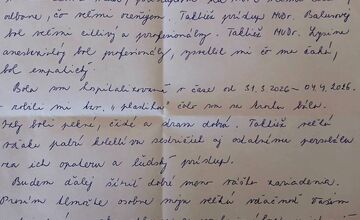 odborne, čo veľmi oceňujem. Taktiež prístup MUDr. Bakurovej
bol veľmi citlivý a profesionálny. Taktiež MUDr.
anesteziológ bol profesionálny, vysvetlil mi čo ma čaká,
bol empatický.
Bola som hospitalizovaná v čase od 31.3.2026 – 04.4.2026.
robili mi "plastiku" čo som na
Izby boli pekné, čisté a strava dobrá. Taktiež veľká
vďaka patrí kolektívu sestričiek aj ostatnému personálu
za ich opateru a ľudský prístup.
Budem ďalej šíriť dobré meno vášho zariadenia.
Prosím tlmočte osobne moju veľkú vďačnosť Vašim